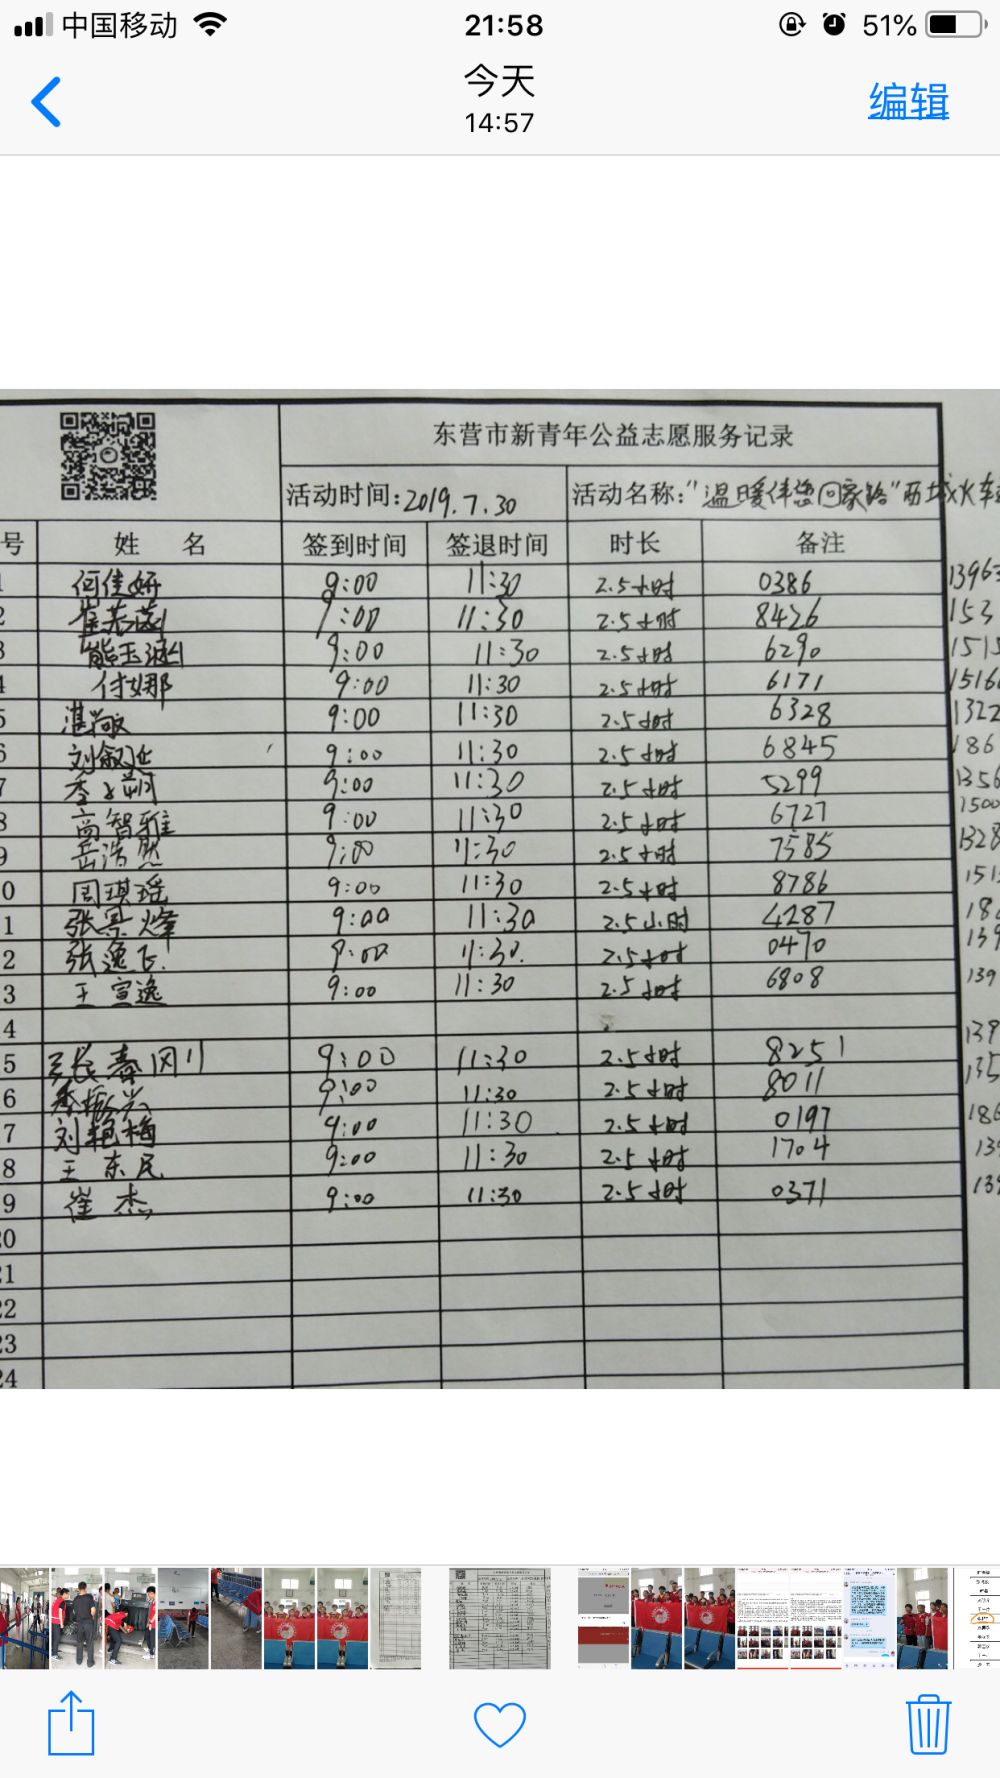 中国移动 21:58 51%
今天
14:57
编辑
东营市新青年公益志愿服务记录
活动时间:2019.7.30 活动名称:"温暖伴您回家路"西城火车
号 姓 名 签到时间 签退时间 时长 备注
1 何佳妍 9:00 11:30 2.5小时 0386 13963
2 崔若涵 9:00 11:30 2.5小时 8426 153
3 熊玉涵 9:00 11:30 2.5小时 6290 1515
4 付娜 9:00 11:30 2.5小时 6171 1516
5 湛敬 9:00 11:30 2.5小时 6328 1322
6 刘叙延 9:00 11:30 2.5小时 6845 186
7 季 9:00 11:30 2.5小时 5299 1356
8 高智雅 9:00 11:30 2.5小时 6727 1500
9 岳浩然 9:00 11:30 2.5小时 7585 1328
0 周琪瑶 9:00 11:30 2.5小时 8786 151
1 张景烽 9:00 11:30 2.5小时 4287 186
2 张逸飞 9:00 11:30 2.5小时 0470 139
3 王宣逸 9:00 11:30 2.5小时 6808 139
4
5 张春刚 9:00 11:30 2.5小时 8251 139
6 季振兴 9:00 11:30 2.5小时 8011 135
7 刘艳梅 9:00 11:30 2.5小时 0197 186
8 王东民 9:00 11:30 2.5小时 1704 139
9 崔杰 9:00 11:30 2.5小时 0371 139
20
21
22
23
24